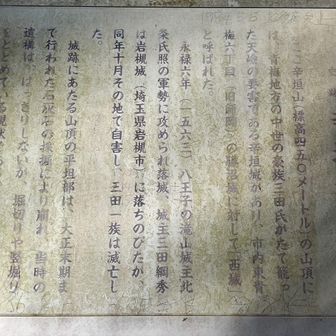 ここ辛垣山(標高四五〇メートル)の山頂に
は、青梅地方の中世の豪族三田氏がたて籠っ
た天嶮の要害である辛垣城があり、市内東青
梅六丁目(旧師岡)の勝沼城に対して「西城」
と呼ばれた。
永禄六年(一五六三)八王子の滝山城主北
条氏照の軍勢に攻められ落城、城主三田綱秀
は岩槻城(埼玉県岩槻市)に落ちのびたが、
同年十月その地で自害し、三田一族は滅亡し
た。
城跡にあたる山頂の平坦部は、大正末期ま
で行われた石灰石の採掘により崩れ、当時の
遺構は、はっきりしないが、堀切りや竪堀り
をとどめている